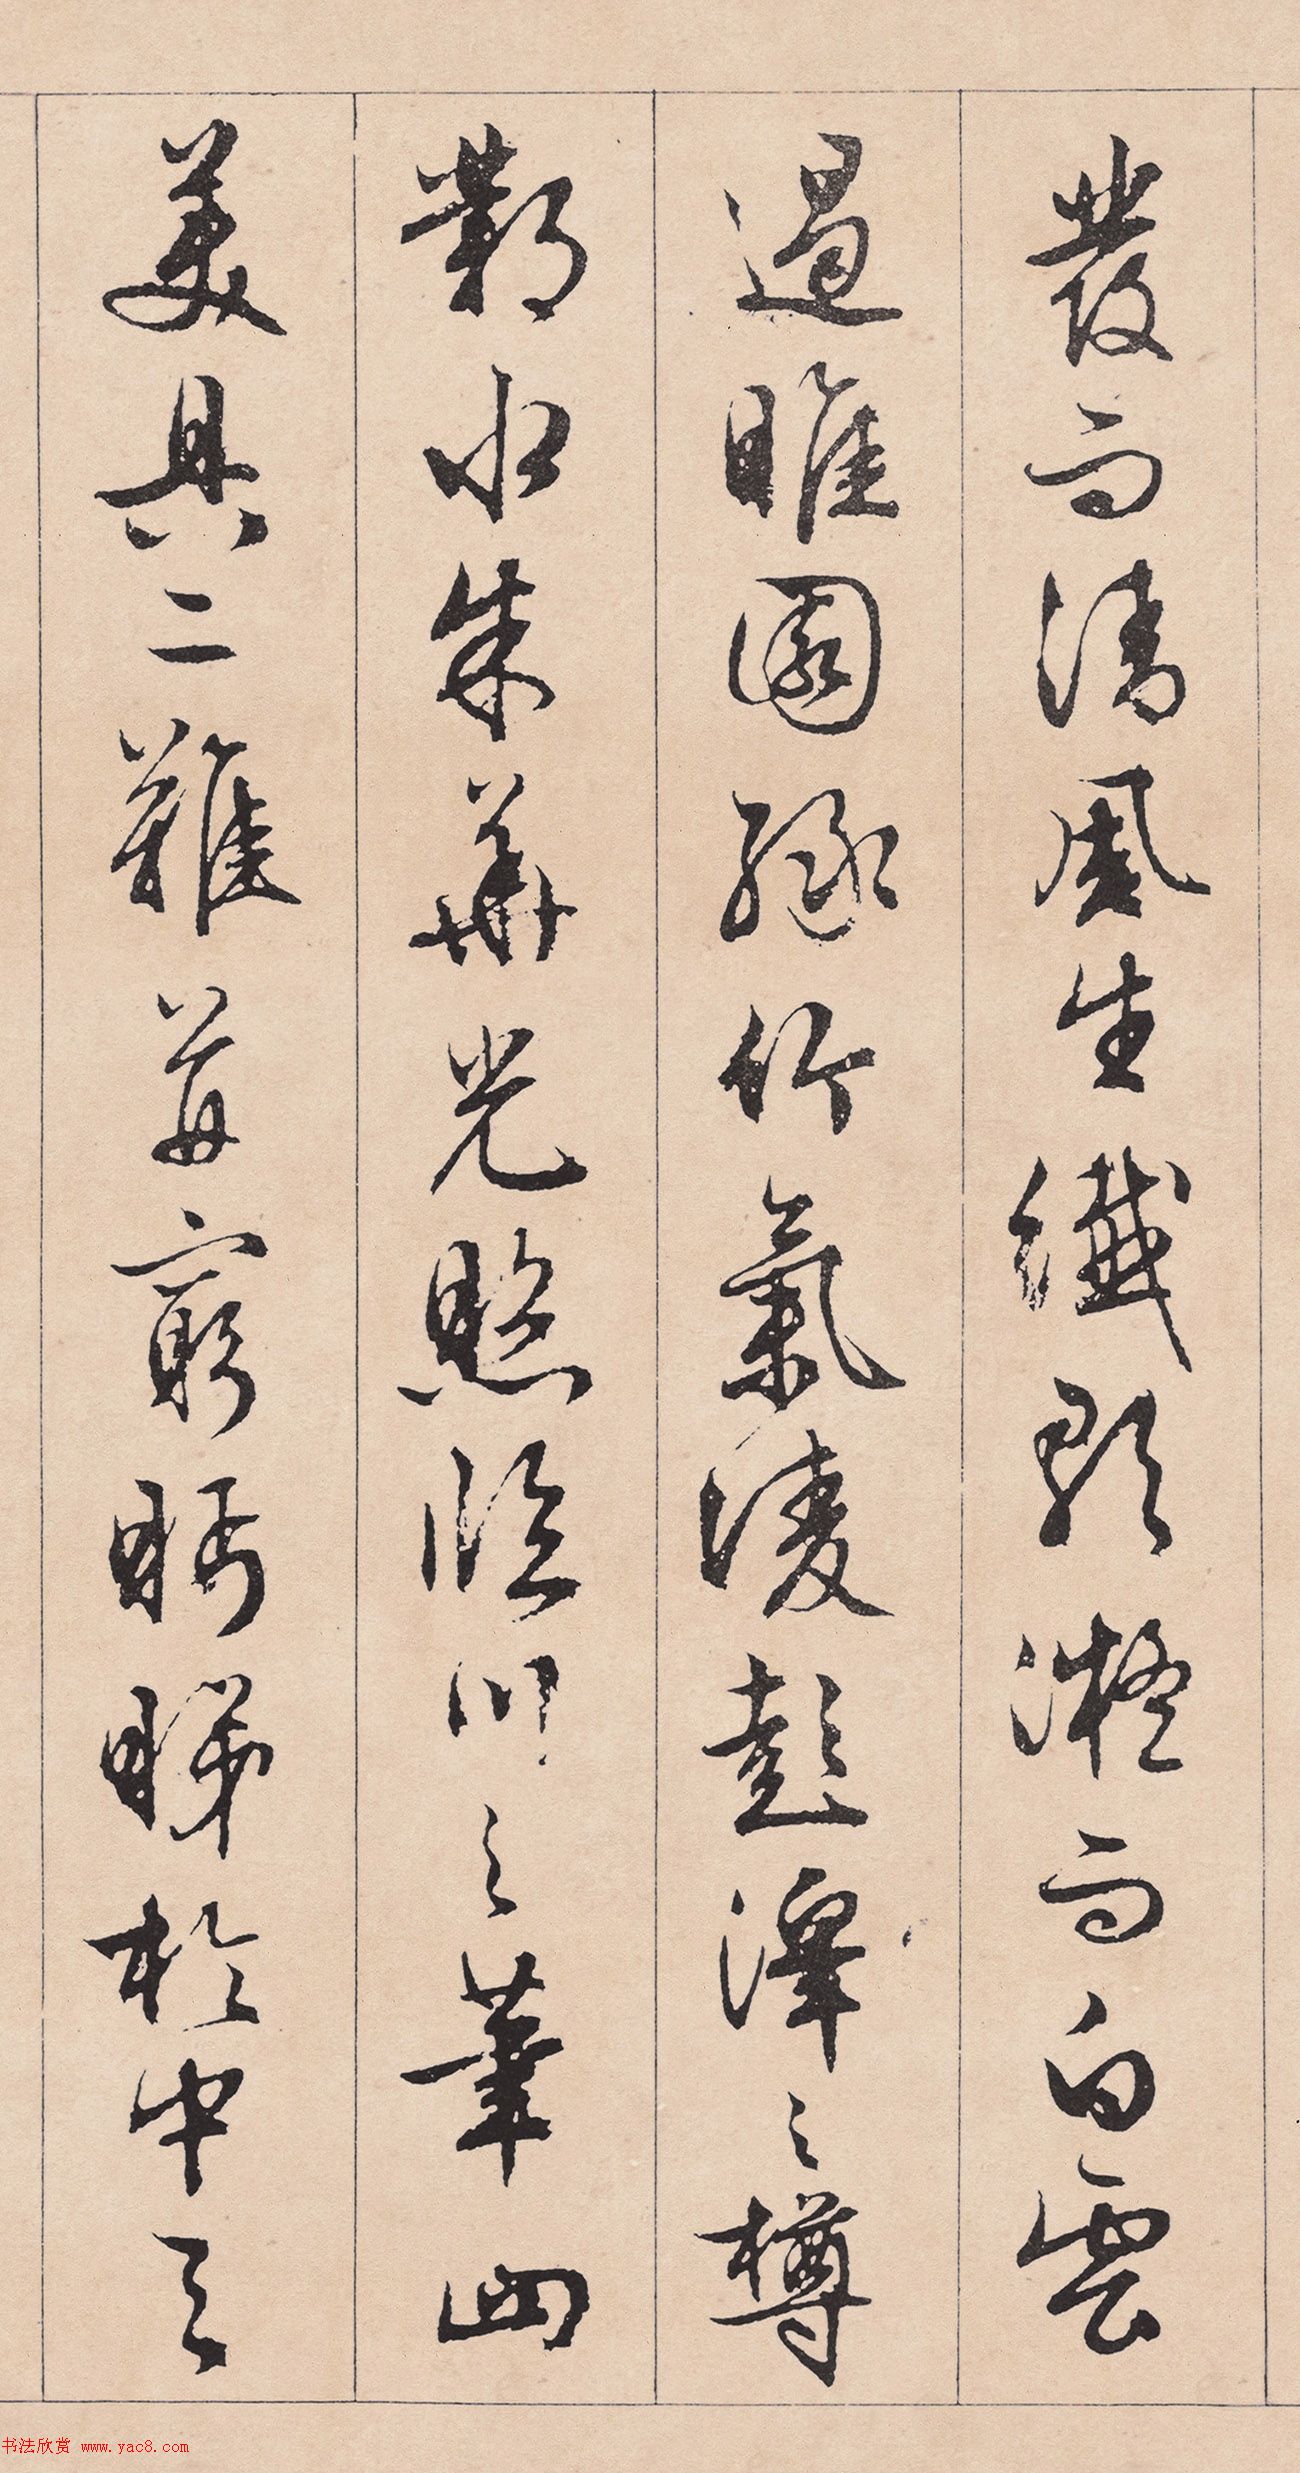 發而清風生纖歌凝而白雲
遏睢園綠竹氣凌彭澤之樽
鄴水朱華光照臨川之筆四
美具二難並窮眄睇於中天
书法欣赏 www.yac8.com